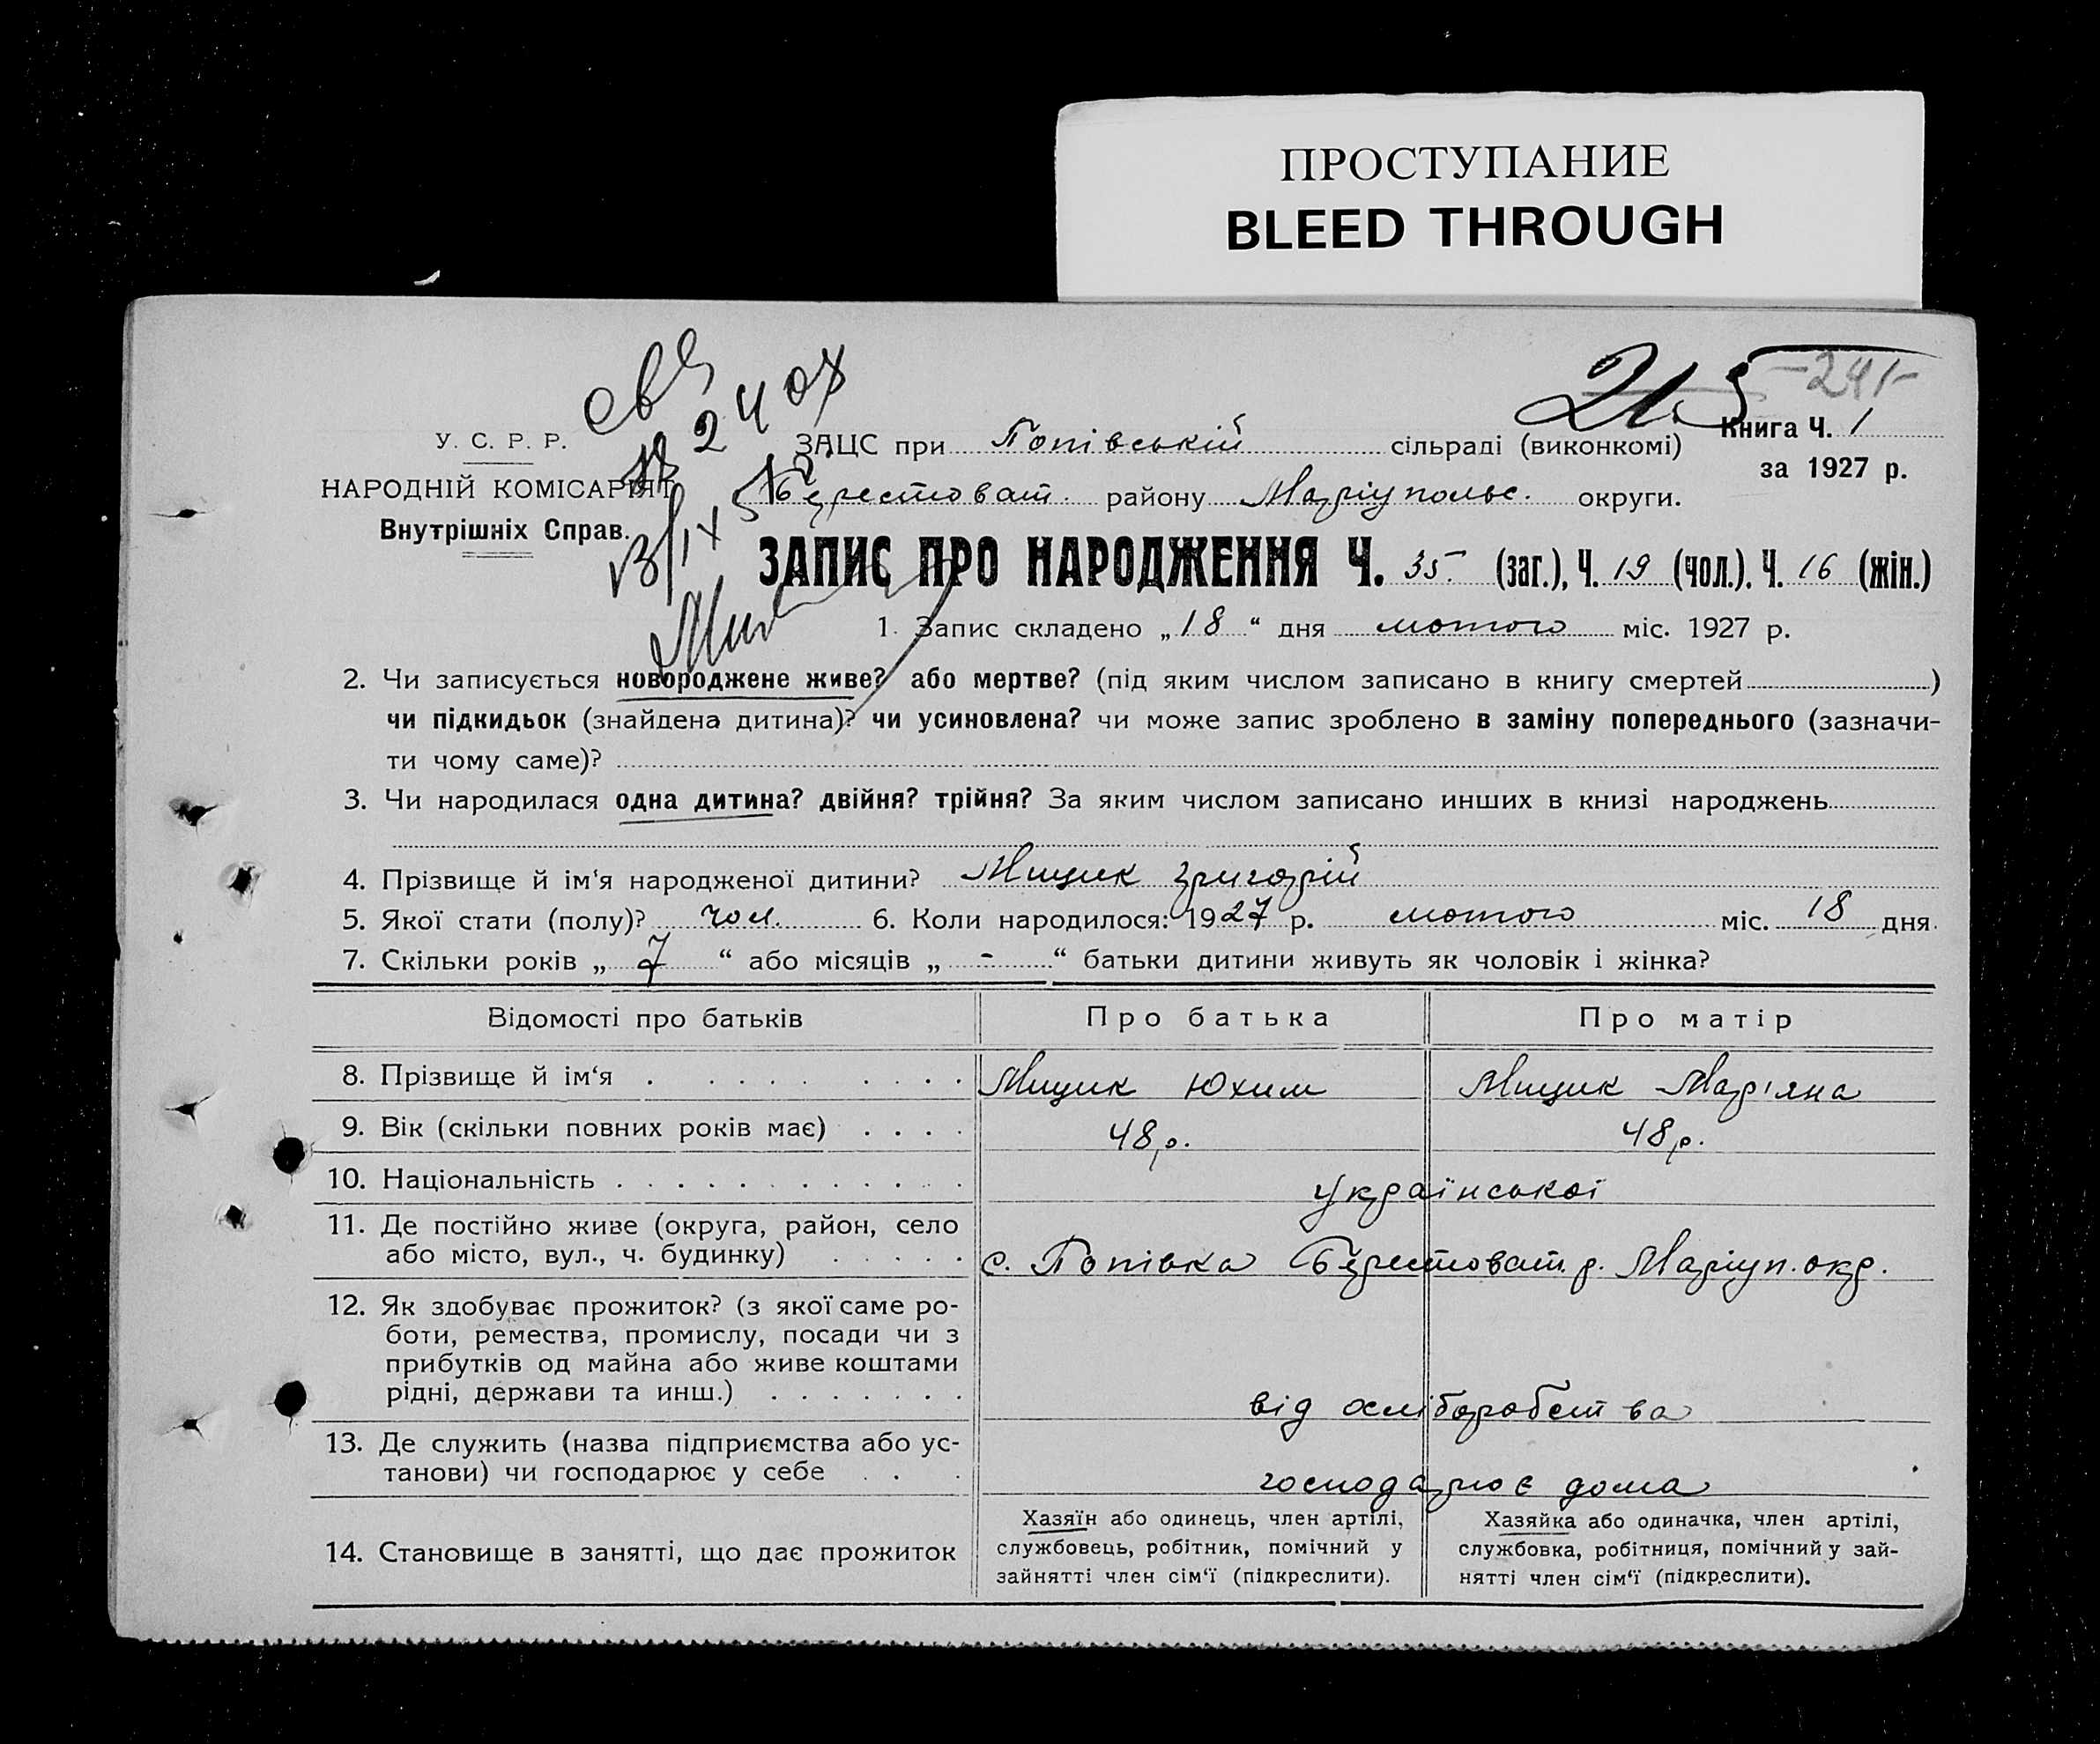 ПРОСТУПАНИЕ
BLEED THROUGH
215 -241-
У. С. Р. Р.
НАРОДНІЙ КОМІСАРІЯТ
Внутрішніх Справ.
ЗАЦС при Попівській сільраді (виконкомі)
Книга Ч. 1
за 1927 р.
Берестоват. району Маріупольс. округи.
ЗАПИС ПРО НАРОДЖЕННЯ Ч. 35 (заг.), Ч. 19 (чол.). Ч. 16 (жін.)
1. Запис складено „18“ дня лютого міс. 1927 р.
2. Чи записується новороджене живе? або мертве? (під яким числом записано в книгу смертей)
чи підкидьок (знайдена дитина)? чи усиновлена? чи може запис зроблено в заміну попереднього (зазначи-
ти чому саме)?
3. Чи народилася одна дитина? двійня? трійня? За яким числом записано инших в книзі народжень
4. Прізвище й ім‘я народженої дитини? Мищик Григорій
5. Якої стати (полу)? чол. 6. Коли народилося: 1927 р. лютого міс. 18 дня.
7. Скільки років „7“ або місяців „-“ батьки дитини живуть як чоловік і жінка?
Відомості про батьків Про батька Про матір
8. Прізвище й ім‘я . . . . . . . . . Мищик Юхим Мищик Мар'яна
9. Вік (скільки повних років має) . . . . 48 р. 48 р.
10. Національність . . . . . . . . . . . . української
11. Де постійно живе (округа, район, село
або місто, вул., ч. будинку) . . . . . с. Попівка Берестоват. р. Маріуп. окр.
12. Як здобуває прожиток? (з якої саме ро-
боти, ремества, промислу, посади чи з
прибутків од майна або живе коштами
рідні, держави та инш.) . . . . . . . від хліборобства
13. Де служить (назва підприємства або ус-
танови) чи господарює у себе . . . господарює дома
14. Становище в занятті, що дає прожиток
Хазяїн або одинець, член артілі,
службовець, робітник, помічний у
зайнятті член сім‘ї (підкреслити).
Хазяйка або одиначка, член артілі,
службовка, робітниця, помічний у зай-
нятті член сім‘ї (підкреслити).